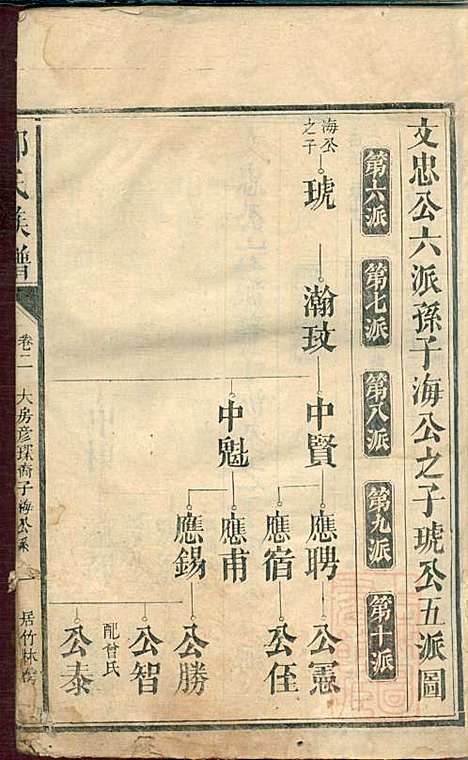 文忠公六派孫子海公之子琥公五派圖
第六派
第七派
第八派
第九派
第十派
海公之子
琥
瀚玟
中賢
中魁
應聘
應宿
應甫
應錫
公憲
公侄
公勝
公智
配曾氏
公泰
氏族譜
卷二
大房彦琛裔子海公系
居竹林